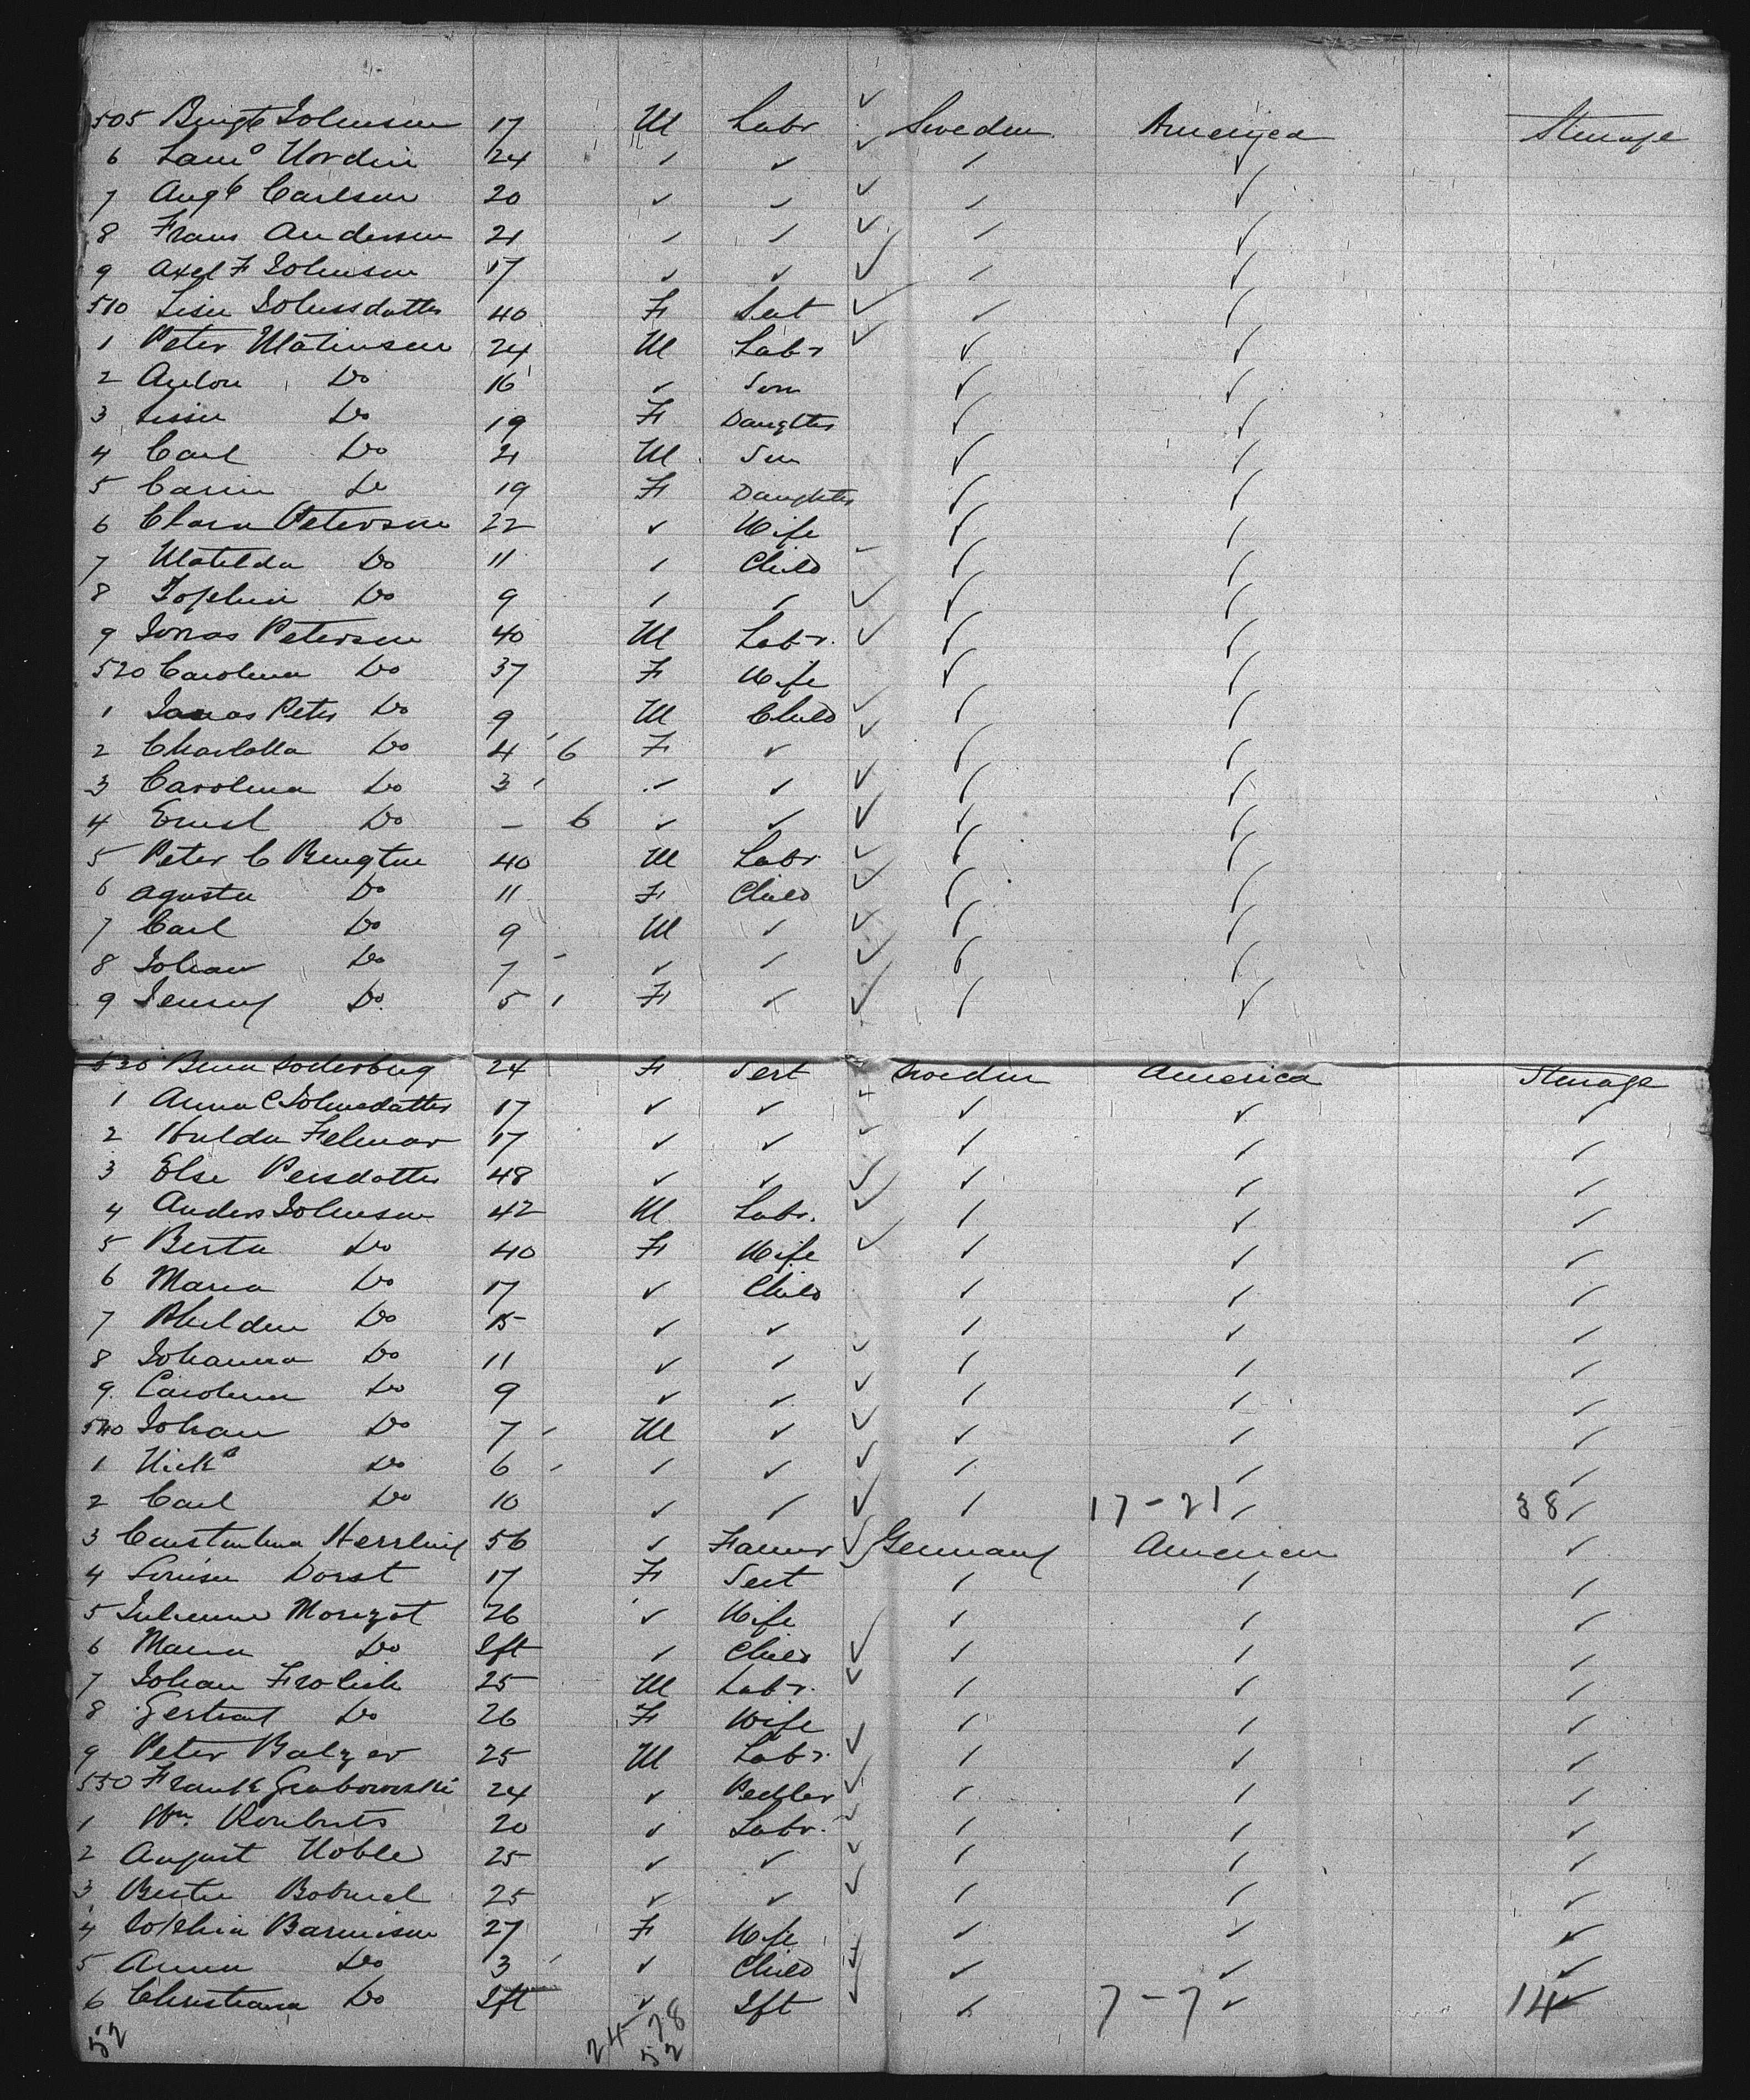 505 Bengt Johnson 17 M Labr Sweden America Steerage
6 Nordin 24 ✓ ✓ ✓ ✓
7 Augt Carlson 20 ✓ ✓ ✓ ✓
8 Frans Anderson 21 ✓ ✓ ✓ ✓
9 Axel F Johnson 17 ✓ ✓ ✓ ✓
510 Lisa Johnsdatter 40 F Sert ✓ ✓
1 Peter Matinson 24 M Labr ✓ ✓
2 Do 16 ✓ Son ✓ ✓
3 Do 19 F Daughter ✓ ✓
4 Carl Do 21 M Son ✓ ✓
5 Carin Do 19 F Daughter ✓ ✓
6 Clara Peterson 22 ✓ Wife ✓ ✓
7 Matilda Do 11 ✓ Child ✓ ✓
8 Sophia Do 9 ✓ ✓ ✓ ✓
9 Jonas Peterson 40 M Labr. ✓ ✓
520 Carolina Do 37 F Wife ✓ ✓
1 Jonas Peter Do 9 M Child ✓ ✓
2 Charlotta Do 4 6 F ✓ ✓ ✓
3 Carolina Do 3 ✓ ✓ ✓ ✓
4 Ernst Do – 6 ✓ ✓ ✓ ✓
5 Peter C Bengton 40 M Labr ✓ ✓
6 Agusta Do 11 F Child ✓ ✓
7 Carl Do 9 M ✓ ✓ ✓
8 Johan Do 7 ✓ ✓ ✓ ✓
9 Jenny Do. 5 F ✓ ✓ ✓
530 Soderberg 24 F Sert Sweden America Steerage
1 Anna C Johnsdatter 17 ✓ ✓ ✓ ✓ ✓
2 Hulda Felmar 17 ✓ ✓ ✓ ✓ ✓
3 Else Persdatter 48 ✓ ✓ ✓ ✓ ✓
4 Anders Johnson 42 M Labr. ✓ ✓ ✓
5 Berta Do 40 F Wife ✓ ✓ ✓
6 Maria Do 17 ✓ Child ✓ ✓ ✓
7 Do 15 ✓ ✓ ✓ ✓ ✓
8 Johanna Do 11 ✓ ✓ ✓ ✓ ✓
9. Carolina Do 9 ✓ ✓ ✓ ✓ ✓
540 Johan Do 7 M ✓ ✓ ✓ ✓
1 Do 6 ✓ ✓ ✓ ✓ ✓
2 Carl Do 10 ✓ ✓ ✓ 17-21 ✓ 38 ✓
3 56 ✓ Farmer Germany America ✓
4 Louisa Dorst 17 F Sert ✓ ✓ ✓
5 Julienne Morizot 26 ✓ Wife ✓ ✓ ✓
6 Maria Do Ift ✓ Child ✓ ✓ ✓
7 Johan Frolich 25 M Labr. ✓ ✓ ✓
8 Gertrud Do 26 F Wife ✓ ✓ ✓
9 Peter Balzer 25 M Labr. ✓ ✓ ✓
550 Frank Grabowski 24 ✓ Pedler ✓ ✓ ✓
1 Wm. 20 ✓ Labr. ✓ ✓ ✓
2 August Noble 25 ✓ ✓ ✓ ✓ ✓
3 25 ✓ ✓ ✓ ✓ ✓
4 Sophia 27 F Wife ✓ ✓ ✓
5 Anna Do 3 ✓ Child ✓ ✓ ✓
6 Christiana Do Ift ✓ Ift ✓ 7-7 ✓ 14 ✓
52 24 28
52